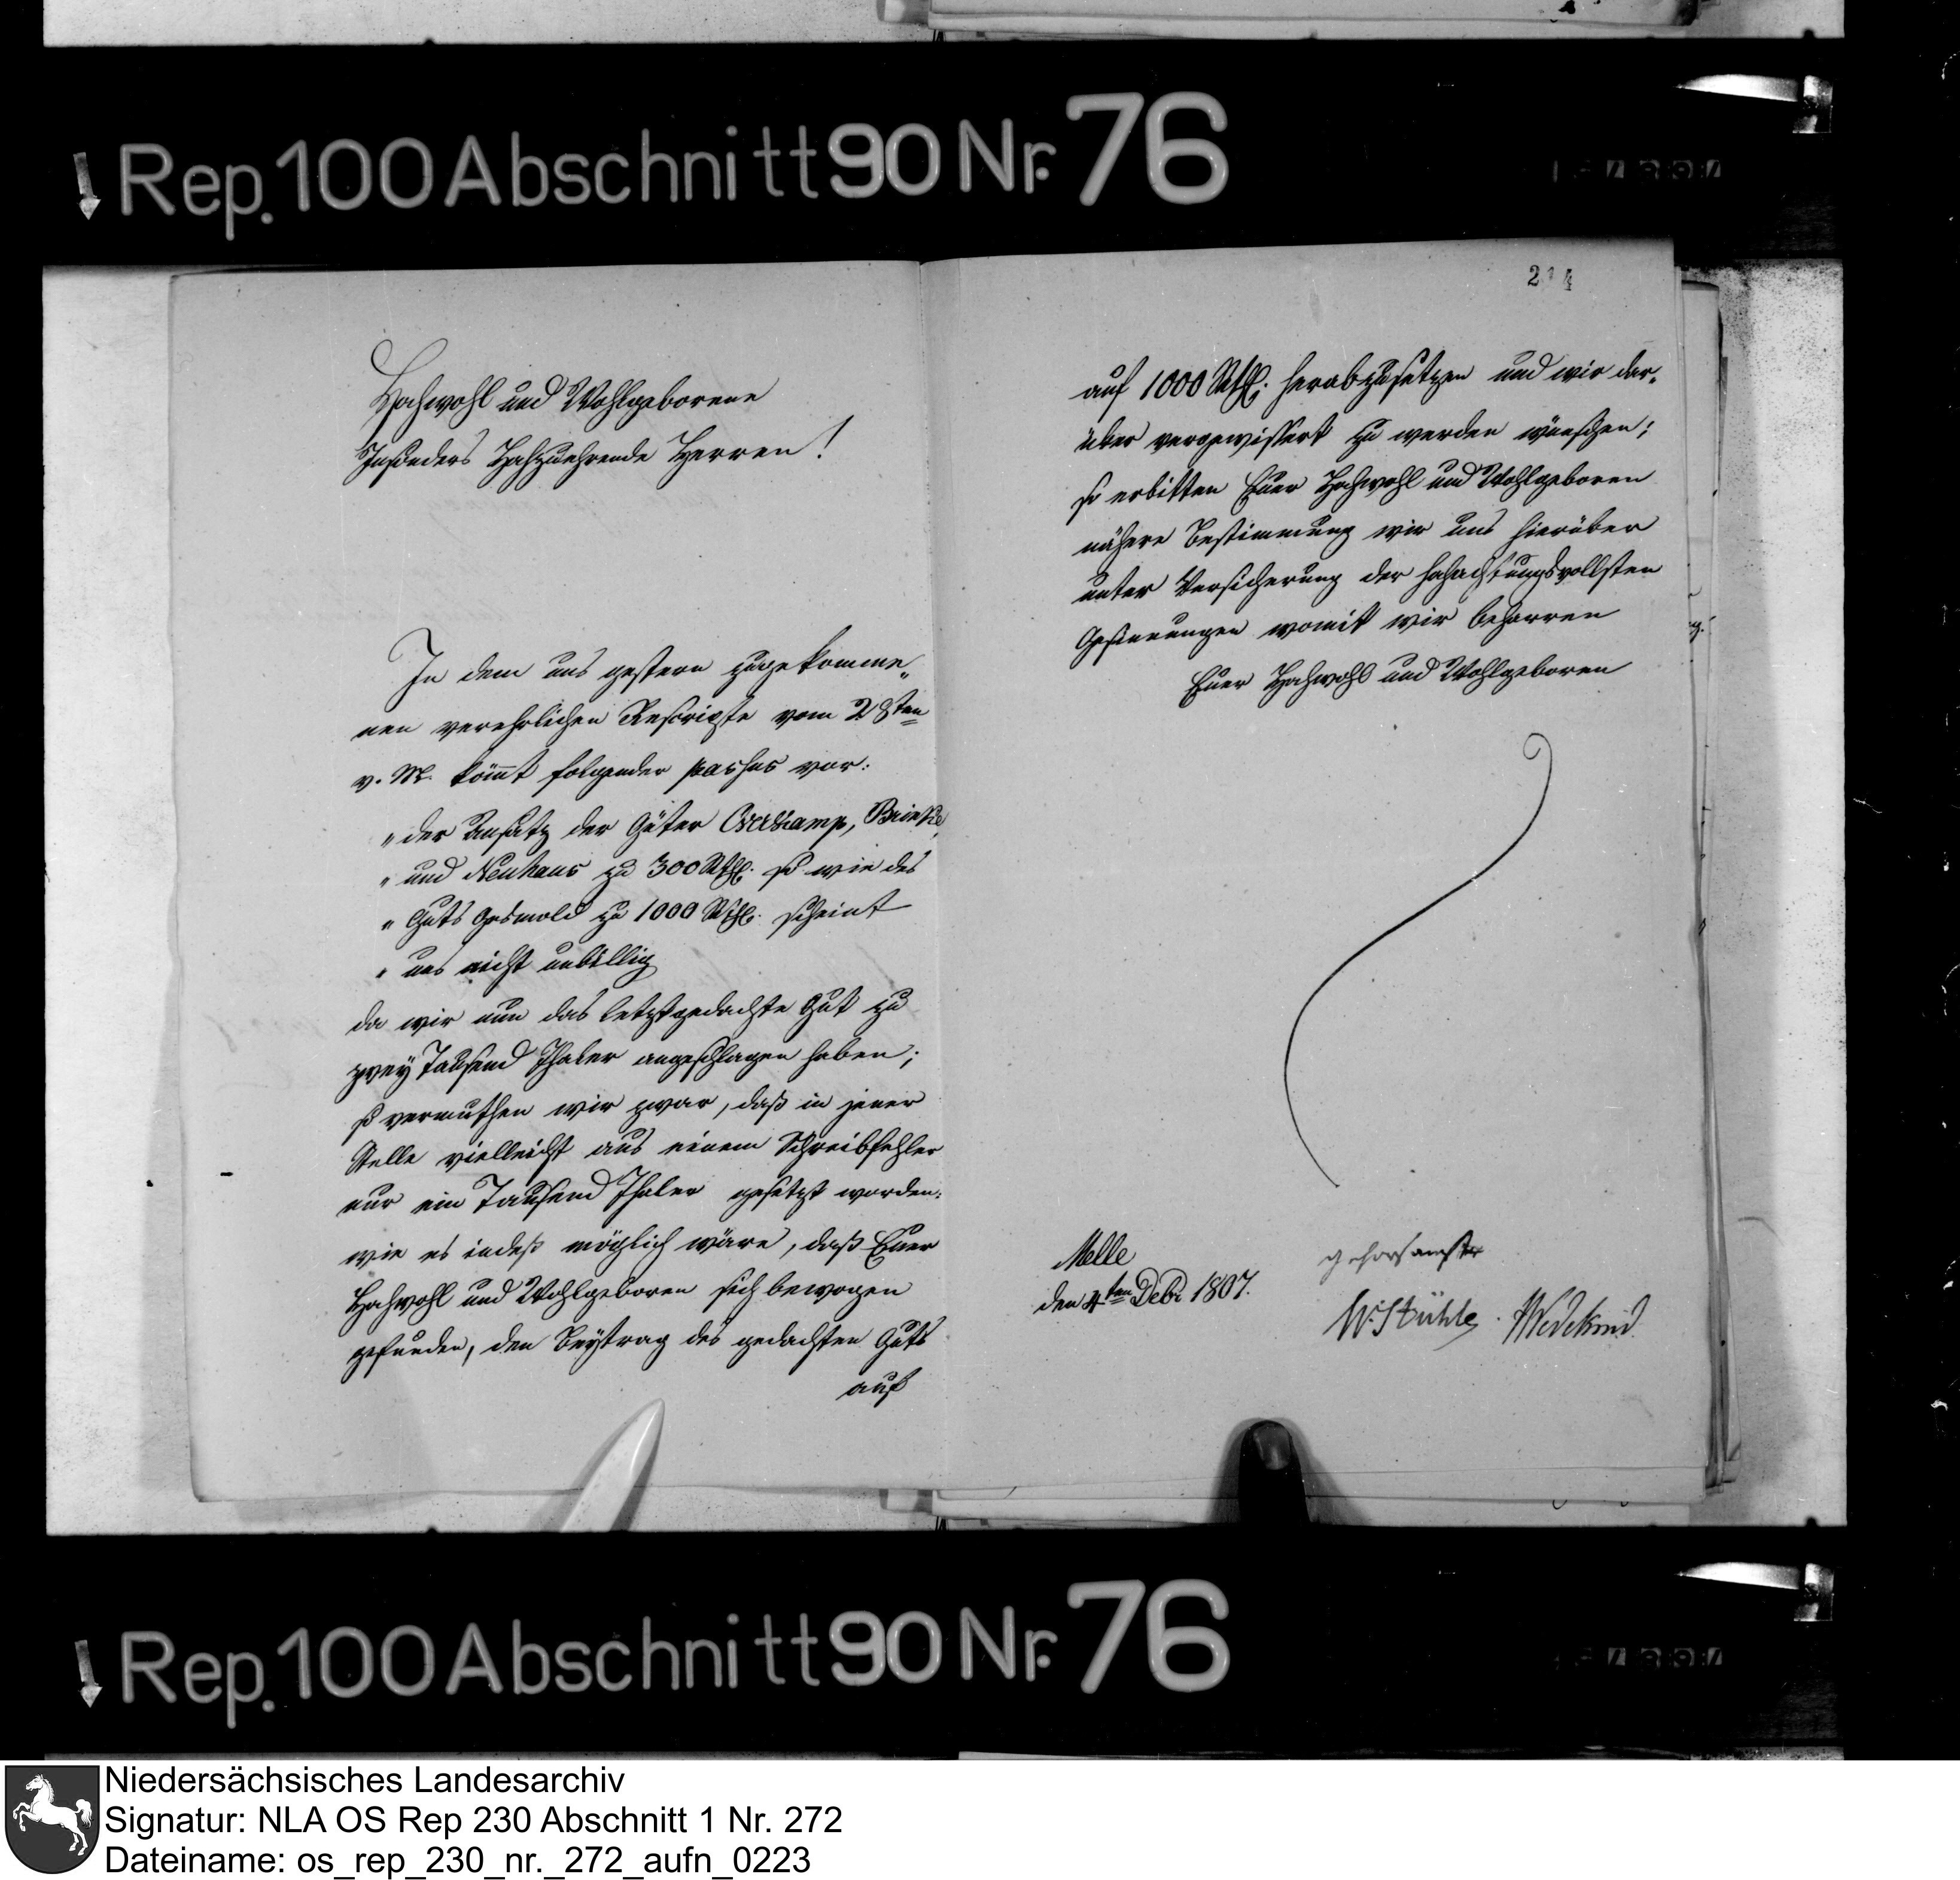 Rep. 100 Abschnitt 90 Nr. 76
Hochwohl und Wohlgeborene
Insonders Hochzuehrende Herren!
In dem uns gestern zugekomme„
nen verehrlichen Rescripte vom 28ten
v. M. kömt folgender passus vor:
„ der Ansatz der Güter Ostkamp, Brinke
„ und Neuhaus zu 300 Rthl. so wie des
„ Guts Gesmold zu 1000 Rthl. scheint
„ uns nicht unbillig
da wir nun das letztgedachte Gut zu
zwey Tausend Thaler angeschlagen haben;
so vermuthen wir zwar, daß in jener
Stelle vielleicht aus einem Schreibfehler
nur ein Tausend Thaler gesetzt worden:
wie es indeß möglich wäre, daß Euer
Hochwohl und Wohlgeboren sich bewogen
gefunden, den Beytrag des gedachten Guts
auf
214
auf 1000 Rthl. herabzusetzen und wir dar„
über vergewissert zu werden wünschen;
so erbitten Euer Hochwohl und Wohlgeboren
nähere Bestimmung wir uns hierüber
unter Versicherung der hochachtungsvollsten
Gesinnungen womit wir beharren
Euer Hochwohl und Wohlgeboren
Melle
den 4ten Debr 1807.
gehorsamste
W. Stühle. Wedekind.
Rep. 100 Abschnitt 90 Nr. 76
Niedersächsisches Landesarchiv
Signatur: NLA OS Rep 230 Abschnitt 1 Nr. 272
Dateiname: os_rep_230_nr._272_aufn_0223